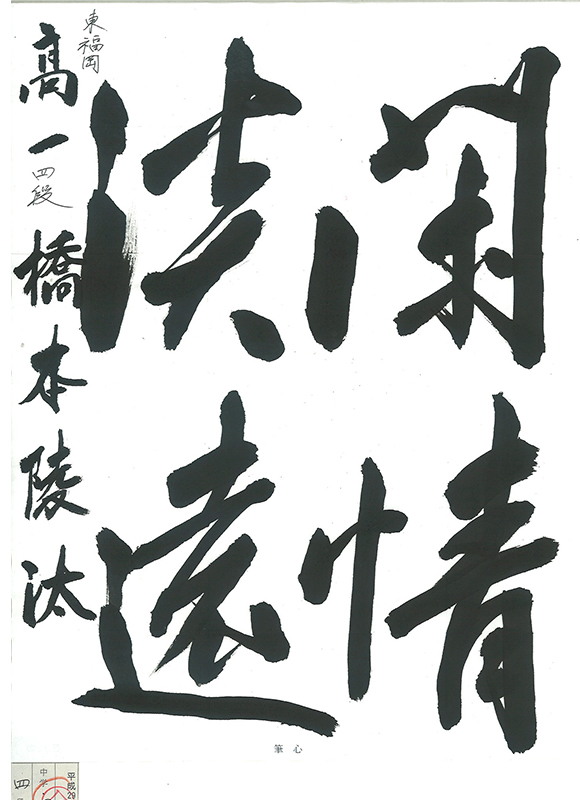 閑情
淡遠
東福岡
高一 四段 橋本陵汰
筆 心
平成29
中学
四